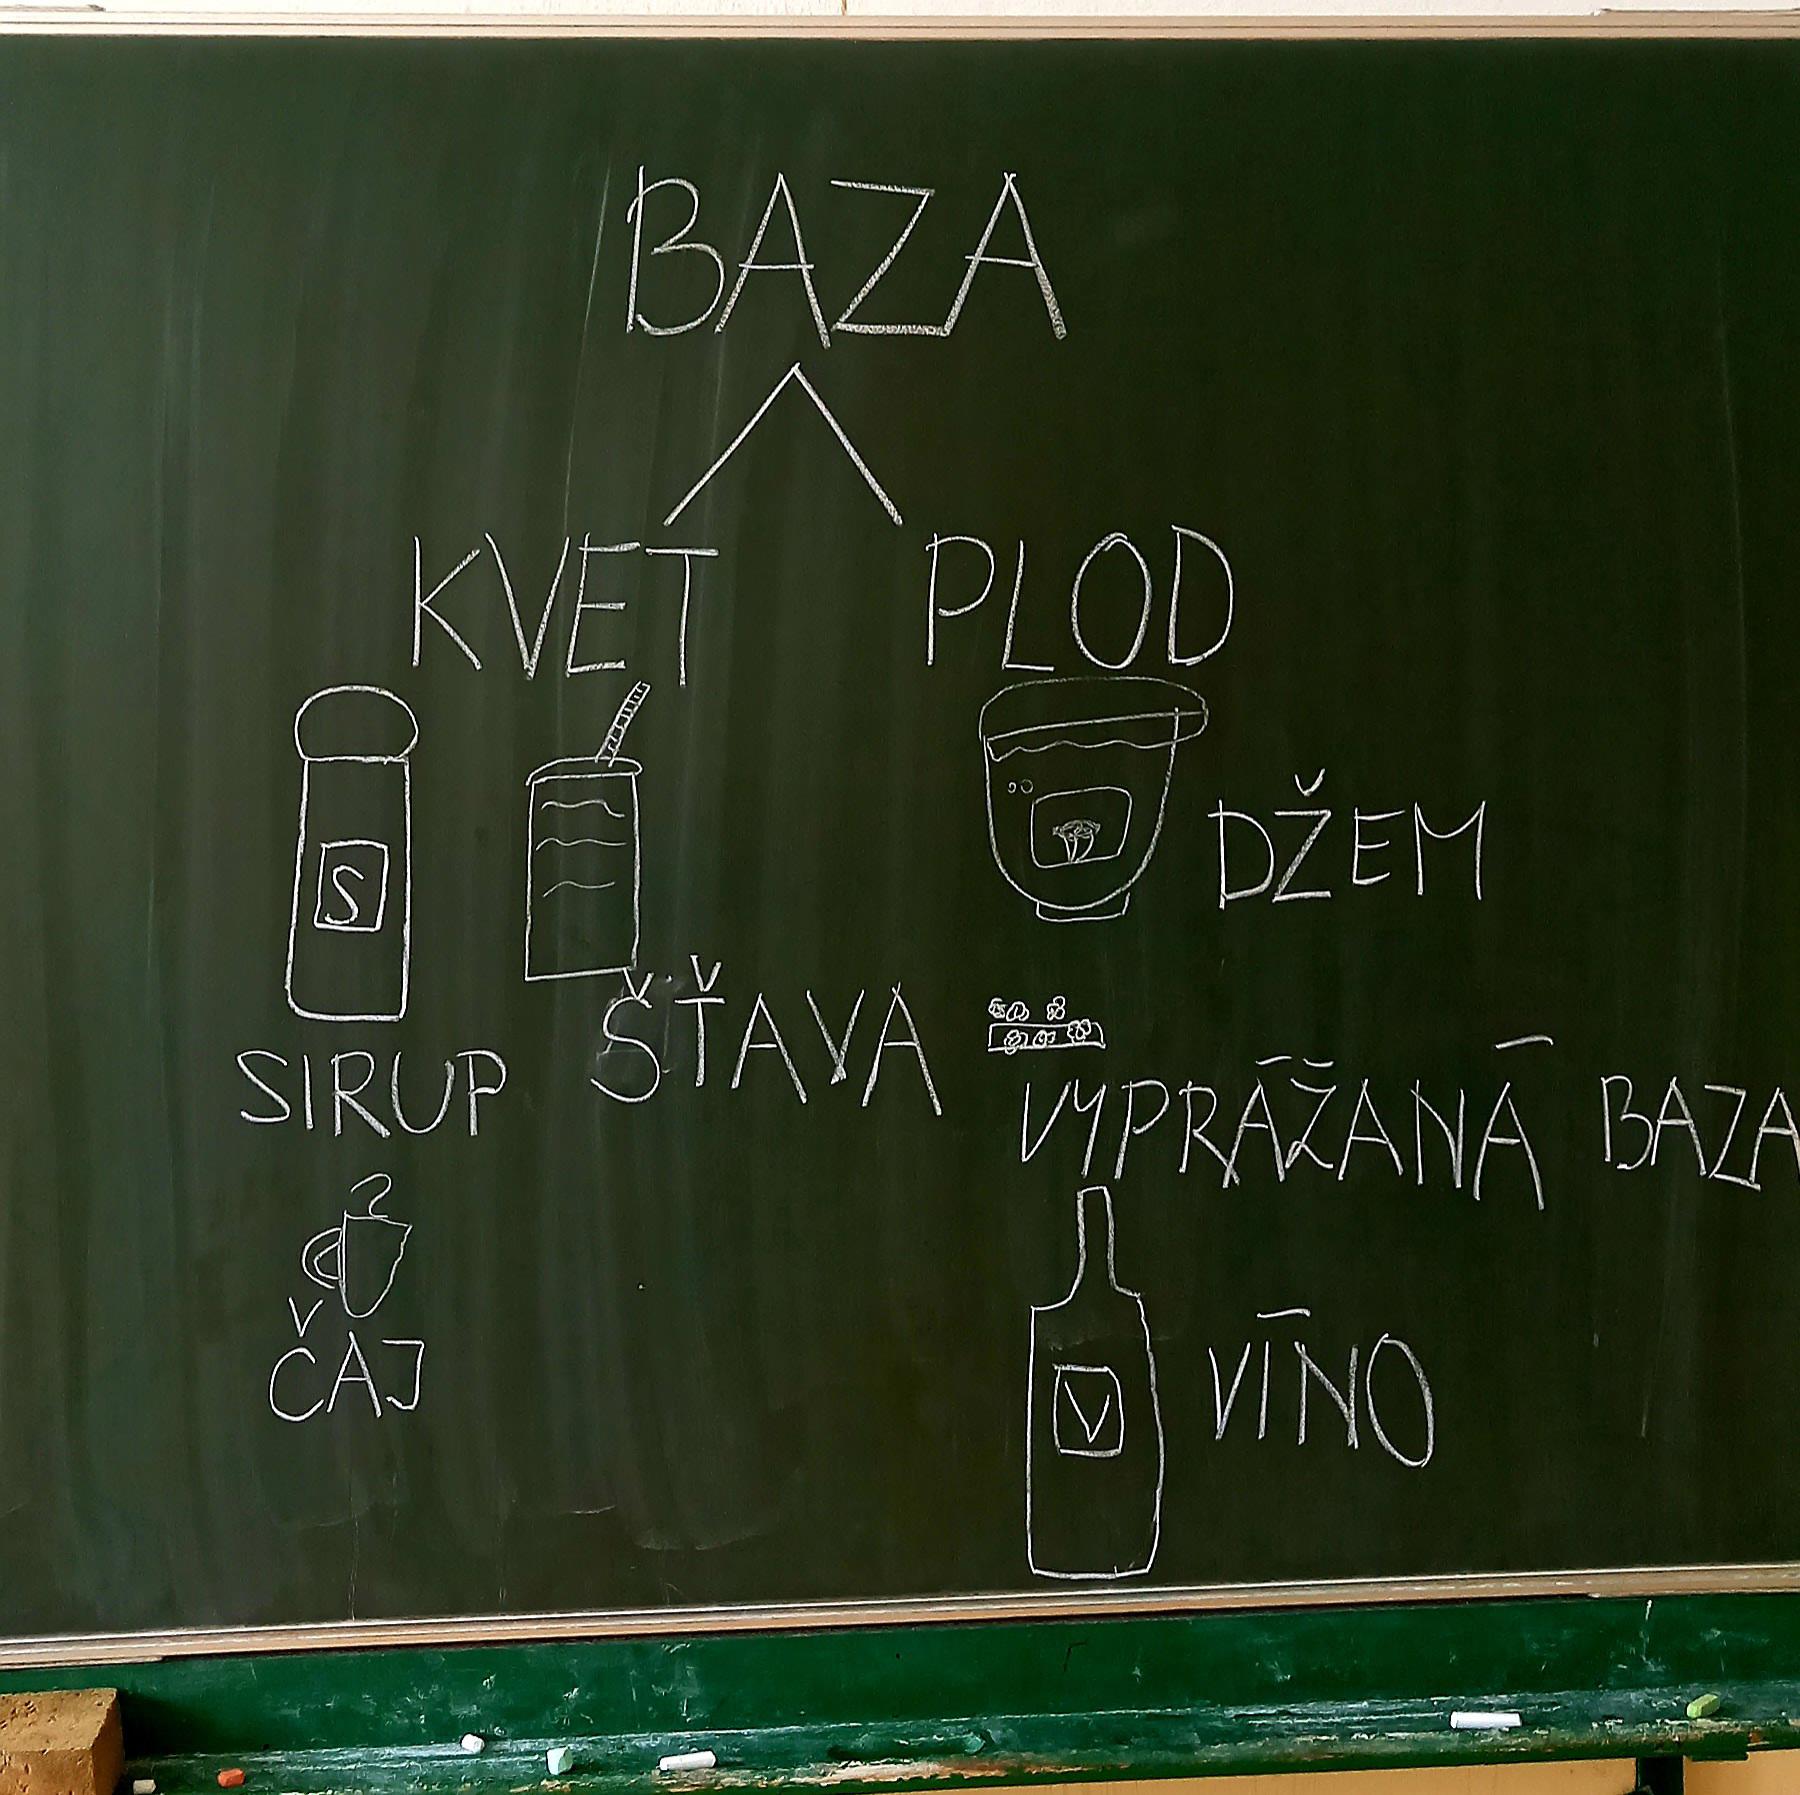 BAZA
KVET PLOD
S
DŽEM
SIRUP ŠŤAVA
VYPRÁŽANÁ BAZA
ČAJ
V
VÍNO